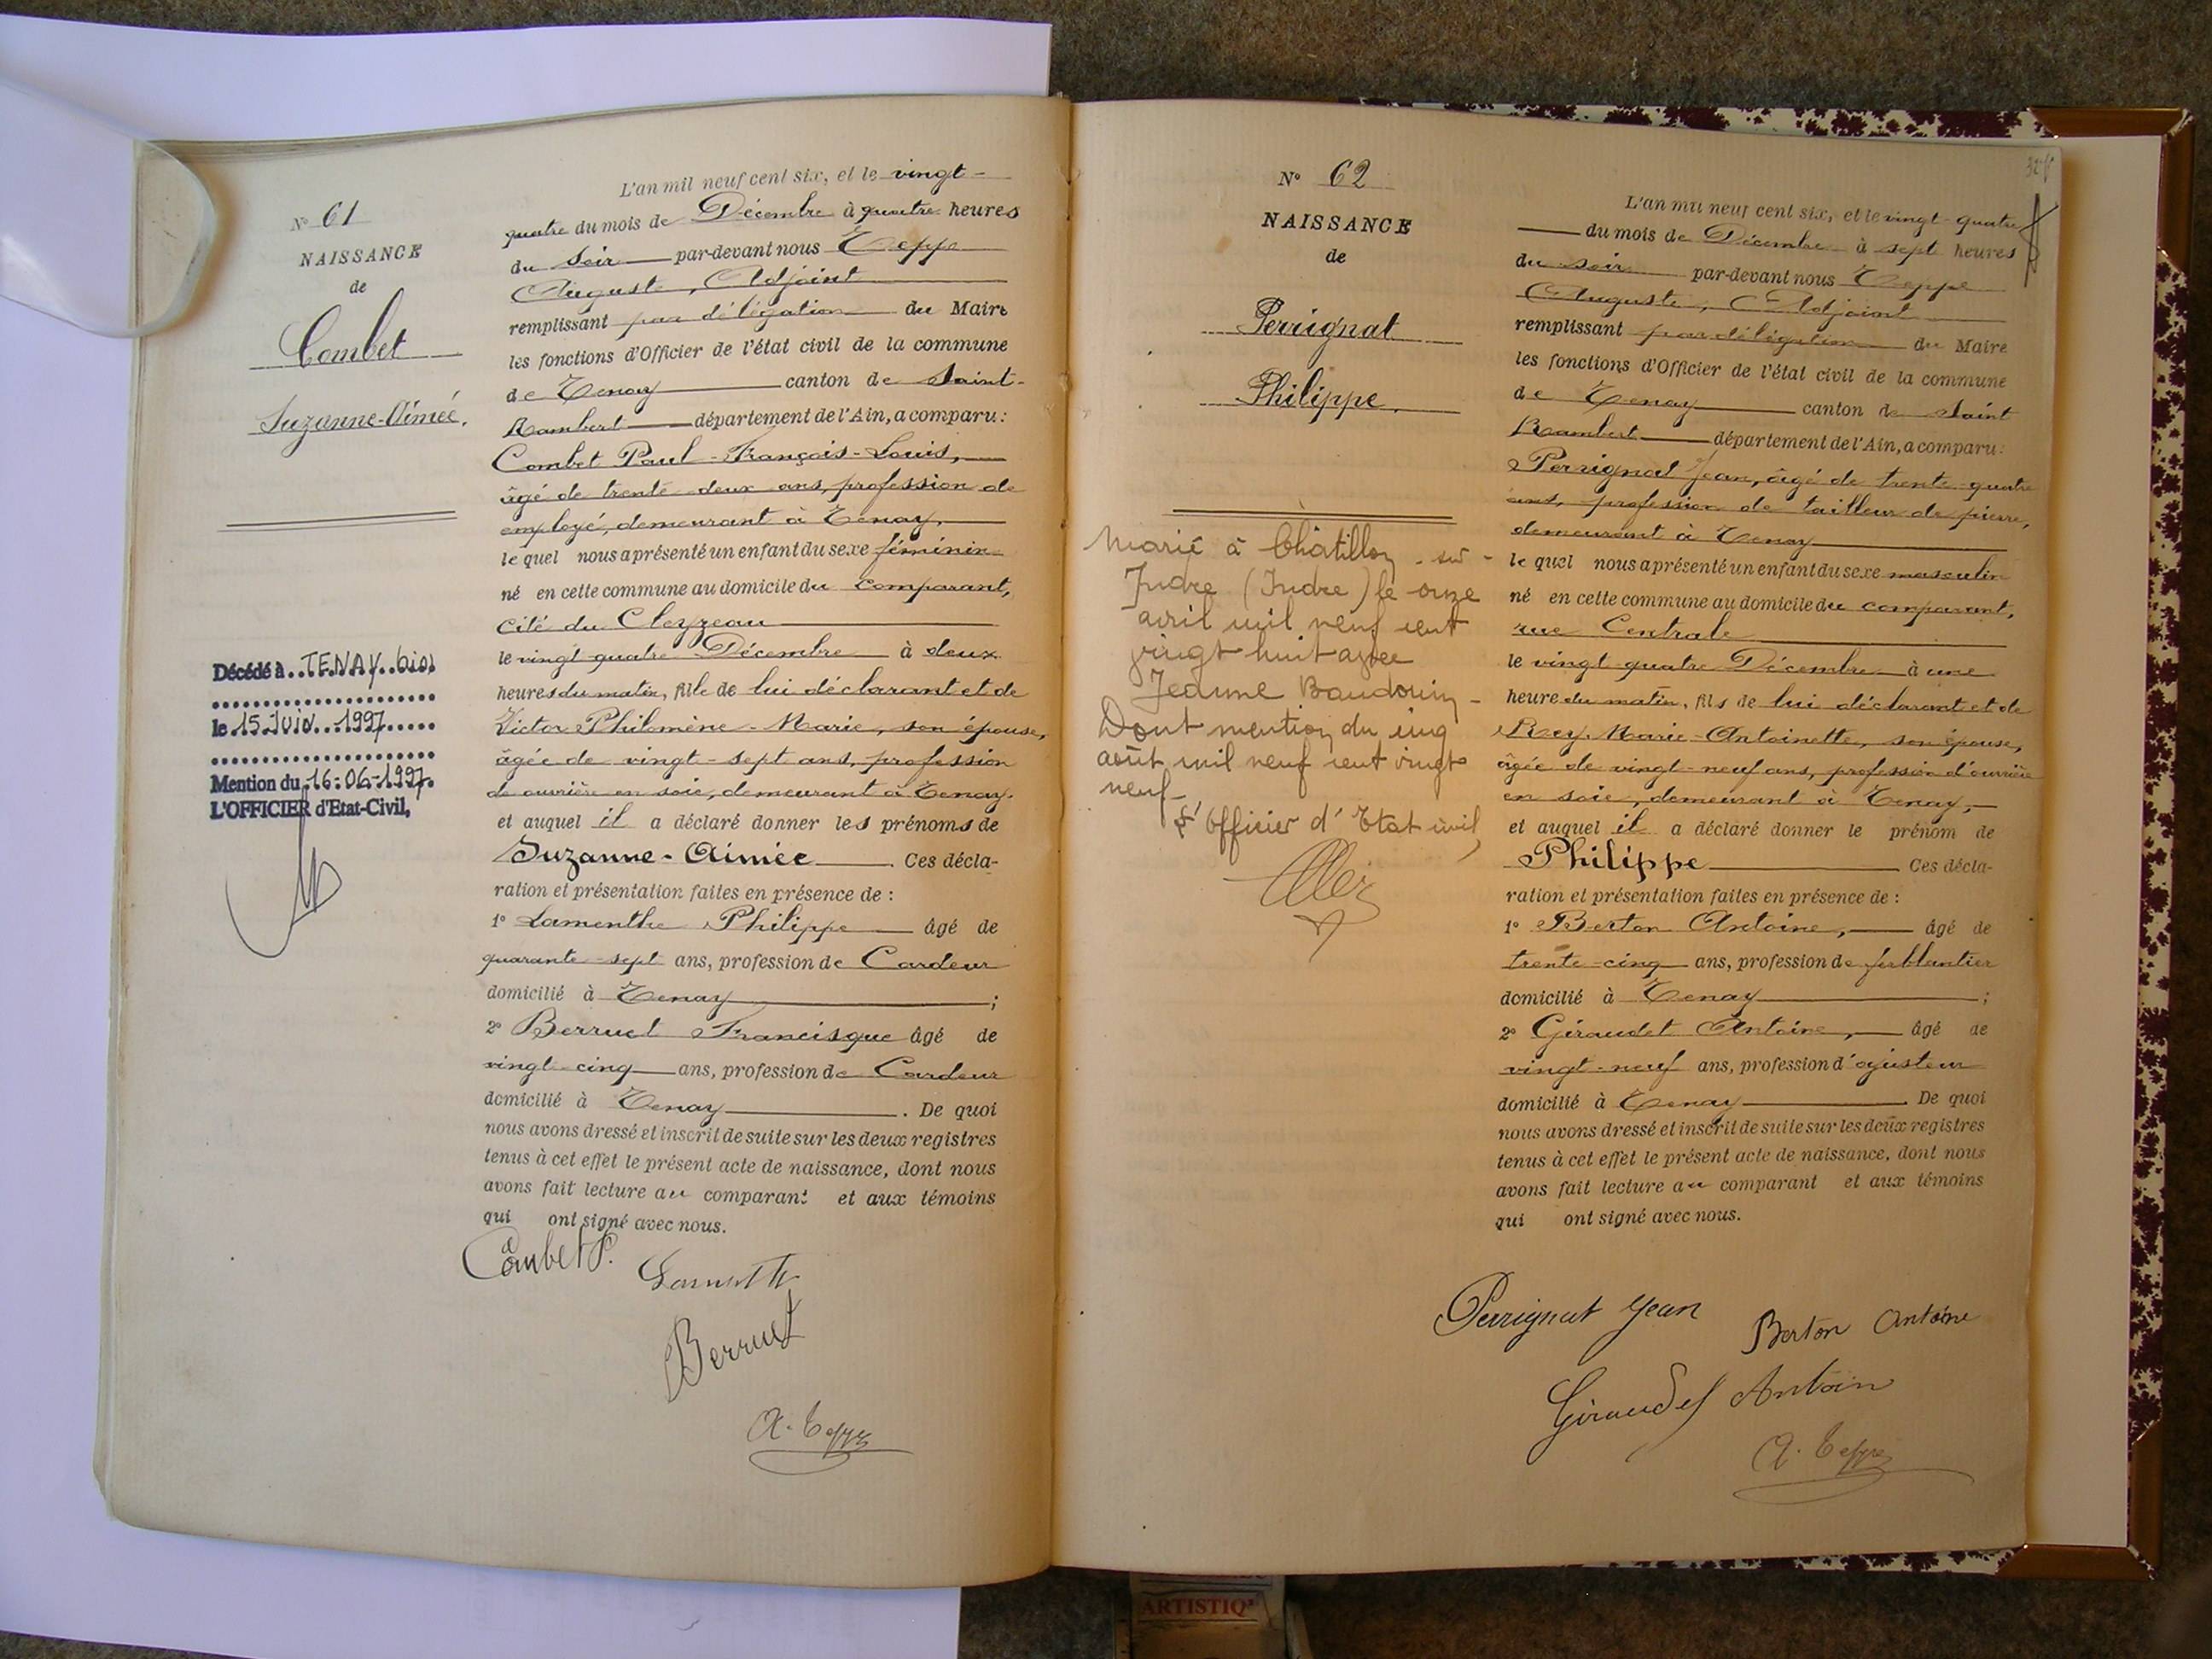 N° 61
NAISSANCE
de
Combet
Suzanne-Aimée.
Décédé à TENAY
le 15 JUIN 1997
Mention du 16-06-1997
L'OFFICIER d'Etat-Civil,
L'an mil neuf cent six, et le vingt-
quatre du mois de Décembre à quatre heures
du soir par-devant nous Teppe
Auguste, Adjoint
remplissant par délégation du Maire
les fonctions d'Officier de l'état civil de la commune
de Tenay canton de Saint-
Rambert département de l'Ain, a comparu :
Combet Paul-François-Louis,
âgé de trente deux ans, profession de
employé, demeurant à Tenay,
lequel nous a présenté un enfant du sexe féminin
né en cette commune au domicile du comparant,
cité du Cleyzeau
le vingt quatre Décembre à deux
heures du matin, fille de lui déclarant et de
Victor Philomène-Marie, son épouse,
âgée de vingt-sept ans, profession
de ouvrière en soie, demeurant à Tenay.
et auquel il a déclaré donner les prénoms de
Suzanne-Aimée. Ces décla-
ration et présentation faites en présence de :
1° Lamenthe Philippe âgé de
quarante-sept ans, profession de Cardeur
domicilié à Tenay ;
2° Berruet Francisque âgé de
vingt-cinq ans, profession de Cardeur
domicilié à Tenay. De quoi
nous avons dressé et inscrit de suite sur les deux registres
tenus à cet effet le présent acte de naissance, dont nous
avons fait lecture au comparant et aux témoins
qui ont signé avec nous.
Combet P.
Berruet
A. Teppe
N° 62
NAISSANCE
de
Perrignat
Philippe.
Marié à Châtillon-sur-
Indre (Indre) le onze
avril mil neuf cent
vingt huit avec
Jeanne Baudouin
Dont mention du cinq
août mil neuf cent vingt
neuf
L'Officier d'Etat civil,
L'an mil neuf cent six, et le vingt quatre
du mois de Décembre à sept heures
du soir par-devant nous Teppe
Auguste, Adjoint
remplissant par délégation du Maire
les fonctions d'Officier de l'état civil de la commune
de Tenay canton de Saint
Rambert département de l'Ain, a comparu :
Perrignat Jean, âgé de trente-quatre
ans, profession de tailleur de pierre,
demeurant à Tenay
lequel nous a présenté un enfant du sexe masculin
né en cette commune au domicile du comparant,
rue Centrale
le vingt quatre Décembre à une
heure du matin, fils de lui déclarant et de
Rey Marie-Antoinette, son épouse,
âgée de vingt-neuf ans, profession d'ouvrière
en soie, demeurant à Tenay,
et auquel il a déclaré donner le prénom de
Philippe Ces décla-
ration et présentation faites en présence de :
1° Berton Antoine, âgé de
trente-cinq ans, profession de ferblantier
domicilié à Tenay ;
2° Giraudet Antoine, âgé de
vingt-neuf ans, profession d'ajusteur
domicilié à Tenay. De quoi
nous avons dressé et inscrit de suite sur les deux registres
tenus à cet effet le présent acte de naissance, dont nous
avons fait lecture au comparant et aux témoins
qui ont signé avec nous.
Perrignat Jean
Berton Antoine
Giraudet Antoin
A. Teppe
ARTISTIQ'